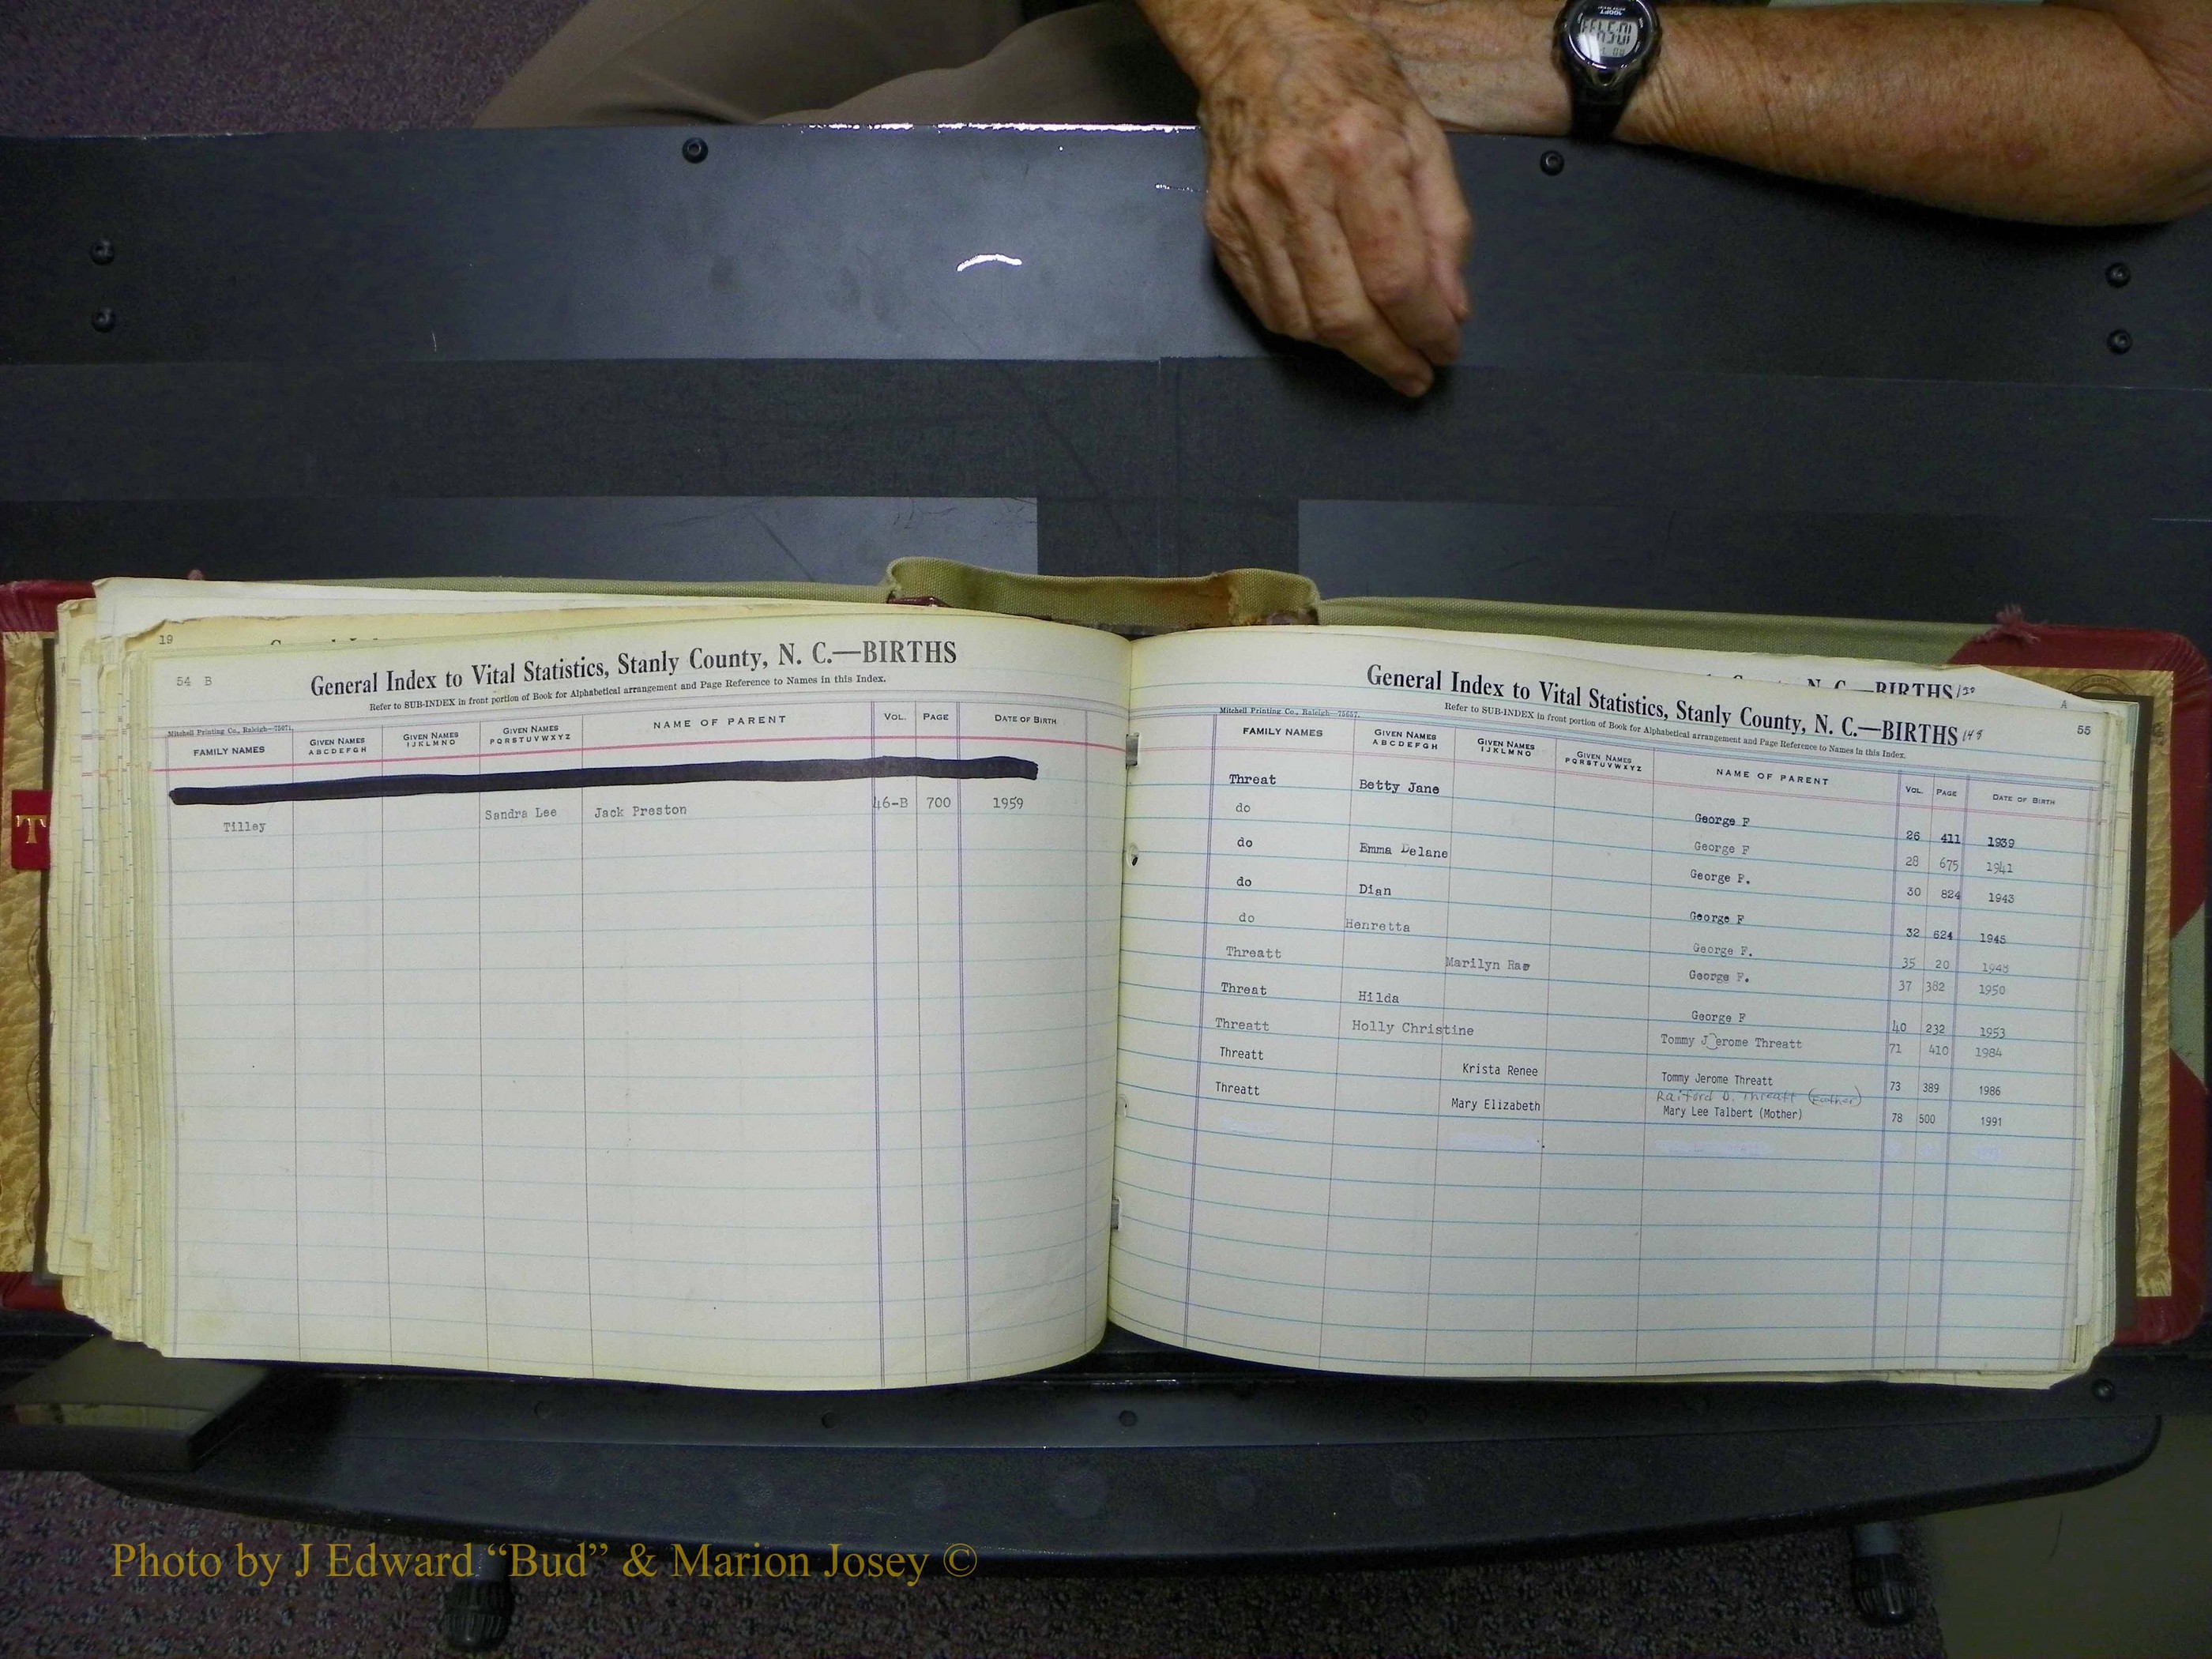 19
54 B
General Index to Vital Statistics, Stanly County, N. C.—BIRTHS
Refer to SUB-INDEX in front portion of Book for Alphabetical arrangement and Page Reference to Names in this Index.
Mitchell Printing Co., Raleigh—75671.
FAMILY NAMES GIVEN NAMES ABCDEFGH GIVEN NAMES IJKLMNO GIVEN NAMES PQRSTUVWXYZ NAME OF PARENT VOL. PAGE DATE OF BIRTH
Tilley Sandra Lee Jack Preston 46-B 700 1959
N. C.—BIRTHS
A
55
General Index to Vital Statistics, Stanly County, N. C.—BIRTHS
Refer to SUB-INDEX in front portion of Book for Alphabetical arrangement and Page Reference to Names in this Index.
Mitchell Printing Co., Raleigh—75657.
FAMILY NAMES GIVEN NAMES ABCDEFGH GIVEN NAMES IJKLMNO GIVEN NAMES PQRSTUVWXYZ NAME OF PARENT VOL. PAGE DATE OF BIRTH
Threat Betty Jane George F 26 411 1939
do George F 28 675 1941
do Emma Delane George F. 30 824 1943
do Dian George F 32 624 1945
do Henretta George F. 35 20 1948
Threatt Marilyn Rae George F. 37 382 1950
Threat Hilda George F 40 232 1953
Threatt Holly Christine Tommy Jerome Threatt 71 410 1984
Threatt Krista Renee Tommy Jerome Threatt 73 389 1986
Raiford D. Threatt (Father)
Threatt Mary Elizabeth Mary Lee Talbert (Mother) 78 500 1991
T
Photo by J Edward “Bud” & Marion Josey ©